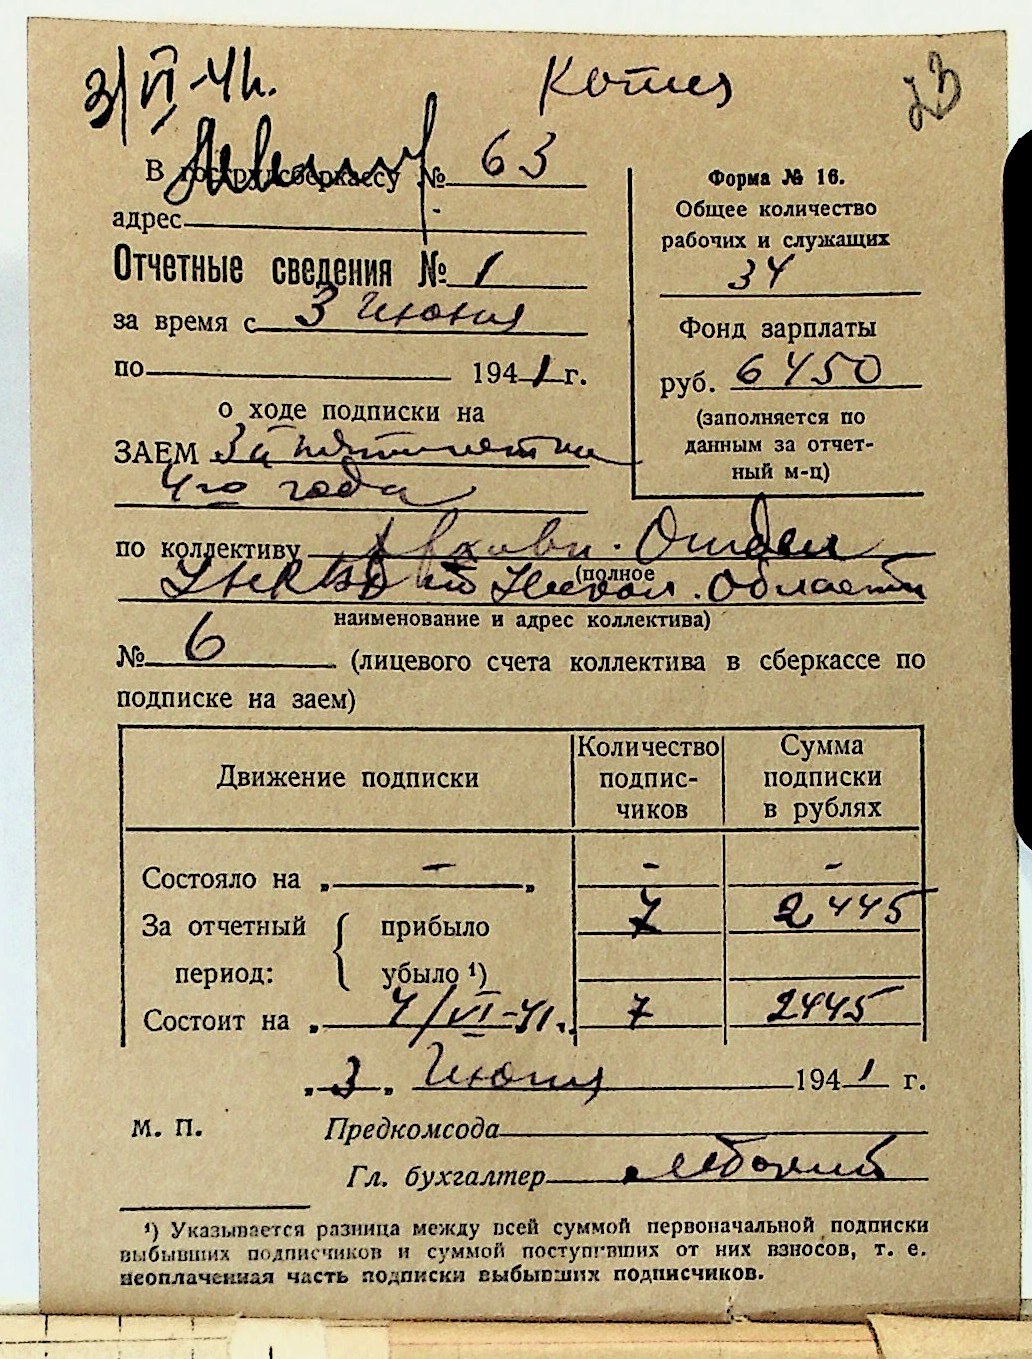 3/VI-41.
Копия
23
В гострудсберкассу № 63
адрес
Отчетные сведения № 1
за время с 3 Июня
по 1941 г.
о ходе подписки на
ЗАЕМ 3й пятилетки
4го года
Форма № 16.
Общее количество
рабочих и служащих
34
Фонд зарплаты
руб. 6450
(заполняется по
данным за отчет-
ный м-ц)
по коллективу Архивн. Отдел
УНКВД по области
(полное
наименование и адрес коллектива)
№ 6 (лицевого счета коллектива в сберкассе по
подписке на заем)
Движение подписки
Количество
подпис-
чиков
Сумма
подписки
в рублях
Состояло на „ - „ - -
За отчетный прибыло 7 2445
период: убыло ¹)
Состоит на „ 4/VI-41. „ 7 2445
„ 3 „ Июня 1941 г.
М. П. Предкомсода
Гл. бухгалтер
¹) Указывается разница между всей суммой первоначальной подписки
выбывших подписчиков и суммой поступивших от них взносов, т. е.
неоплаченная часть подписки выбывших подписчиков.